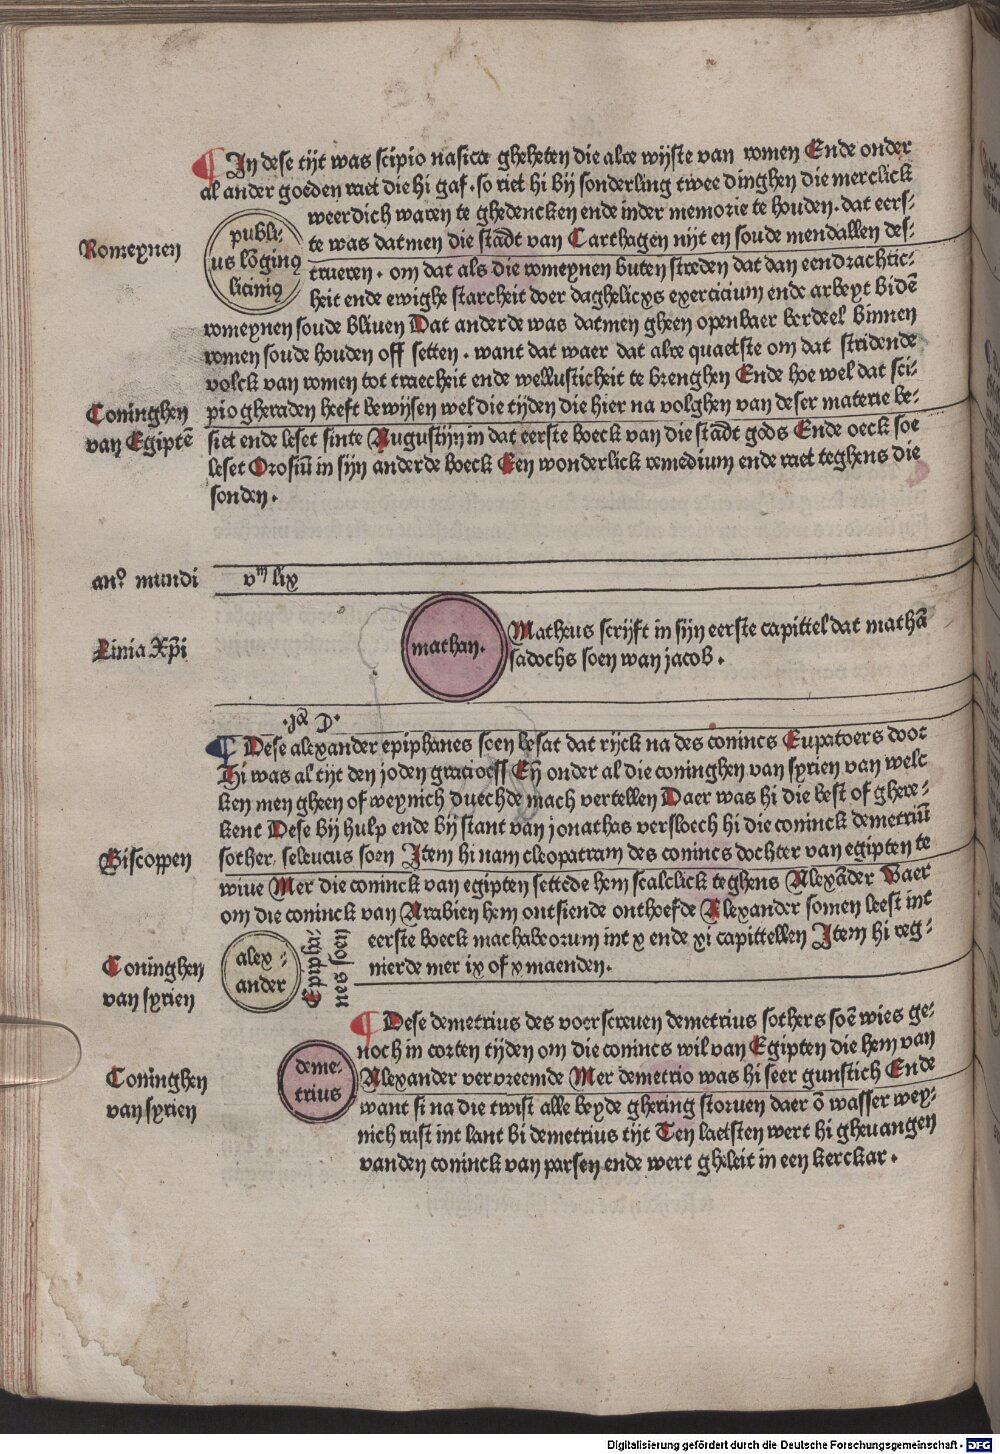 ¶ In dese tijt was scipio nasicæ gheheten die alre wijste van romen Ende onder
al ander goeden raet die hi gaf. so riet hi bij sonderling twee dinghen die merclick
weerdich waren te ghedencken ende inder memorie te houden. dat eers-
te was datmen die stadt van Carthagen nijt en soude mendallen des-
Romeynen
publi-
us lōginꝰ
liciniꝰ
trueren. om dat als die romeynen buten streden dat dan eendrachtic-
heit ende ewighe starcheit doer daghelicxs exercicium ende arbeyt bidē
romeynen soude bliuen Dat anderde was datmen gheen openbaer bordeel binnen
romen soude houden off setten. want dat waer dat alre quaetste om dat stridende
volck van romen tot traecheit ende wellusticheit te brenghen Ende hoe wel dat sci-
pio gheraden heeft bewijsen wel die tijden die hier na volghen van deser materie be-
Coninghen
van Egiptē
siet ende leset sinte Augustijn in dat eerste boeck van die stadt gods Ende oeck soe
leset Orosiū in sijn anderde boeck Een wonderlick remedium ende raet teghens die
sonden.
anꝰ mundi
vᵐ lix
Linia Xp̄i
mathan.
Matheus scrijft in sijn eerste capittel dat mathā
sadochs soen wan jacob.
¶ Dese alexander epiphanes soen besat dat rijck na des conincs Eupatoers doot
Hi was al tijt den joden gracioess Eñ onder al die coninghen van syrien van welc
ken men gheen of weynich duechde mach vertellen Daer was hi die best of ghere-
kent Dese bij hulp ende bij stant van jonathas versloech hi die coninck demetriū
Biscoppen
sother, seleucus soen Item hi nam cleopatram des conincs dochter van egipten te
wiue Mer die coninck van egipten settede hem scalclick teghens Alexāder Daer
om die coninck van Arabien hem ontsiende onthoefde Alexander somen leest int
eerste boeck machabeorum int x ende xi capittellen Item hi reg-
nierde mer ix of x maenden.
Coninghen
van syrien
alex-
ander
Epipha-
nes soen
¶ Dese demetrius des voerscreuen demetrius sothers soē wies ge-
noch in corten tijden om die conincs wil van Egipten die hem van
Coninghen
van syrien
deme-
trius
Alexander vervreemde Mer demetrio was hi seer gunstich Ende
want si na die twist alle beyde ghering storuen daer ō wasser wey-
nich rust int lant bi demetrius tijt Ten laetsten wert hi gheuangen
vanden coninck van parsen ende wert gheleit in een kerckar.
Digitalisierung gefördert durch die Deutsche Forschungsgemeinschaft - DFG